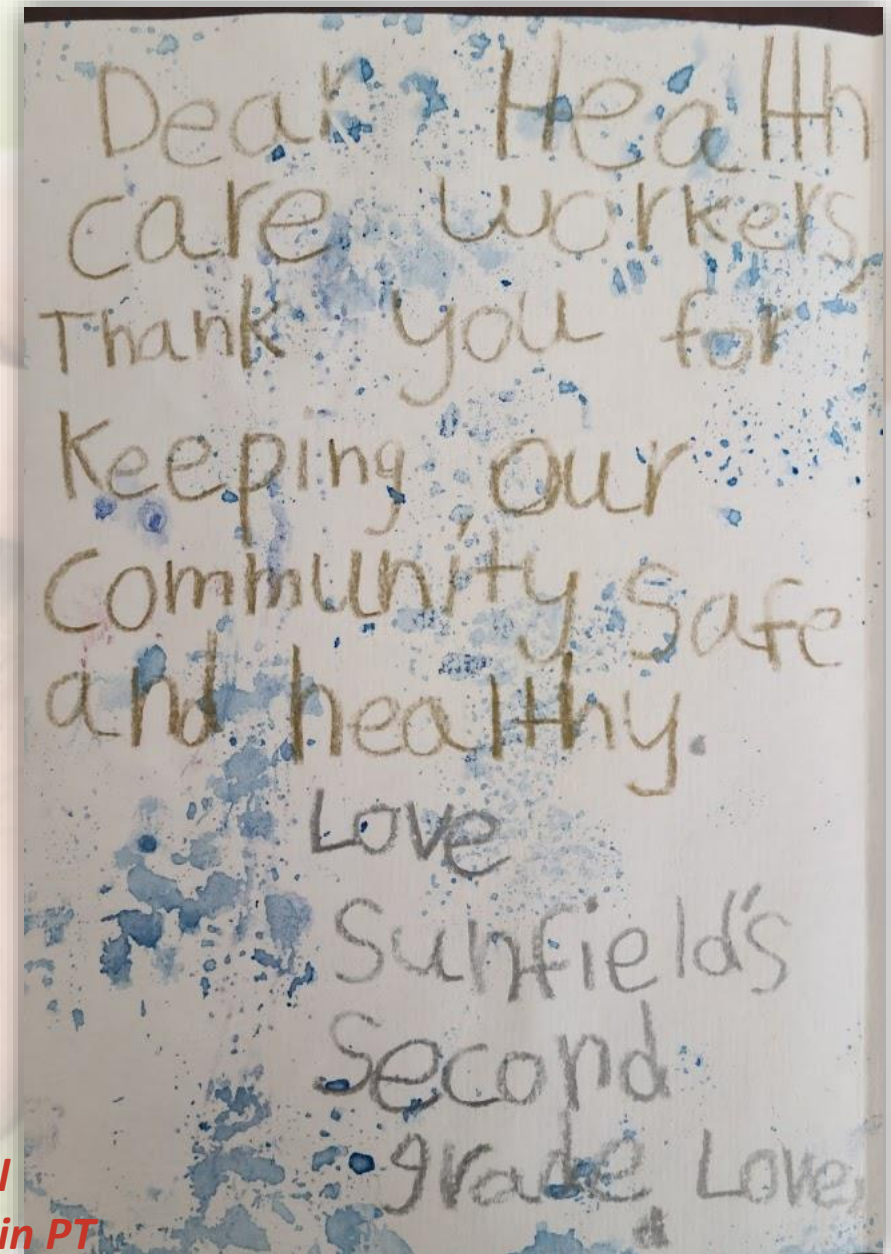 Dear Health
care workers,
Thank you for
Keeping our
Community Safe
and healthy.
Love
Sunfield's
Second
grade Love,
in PT